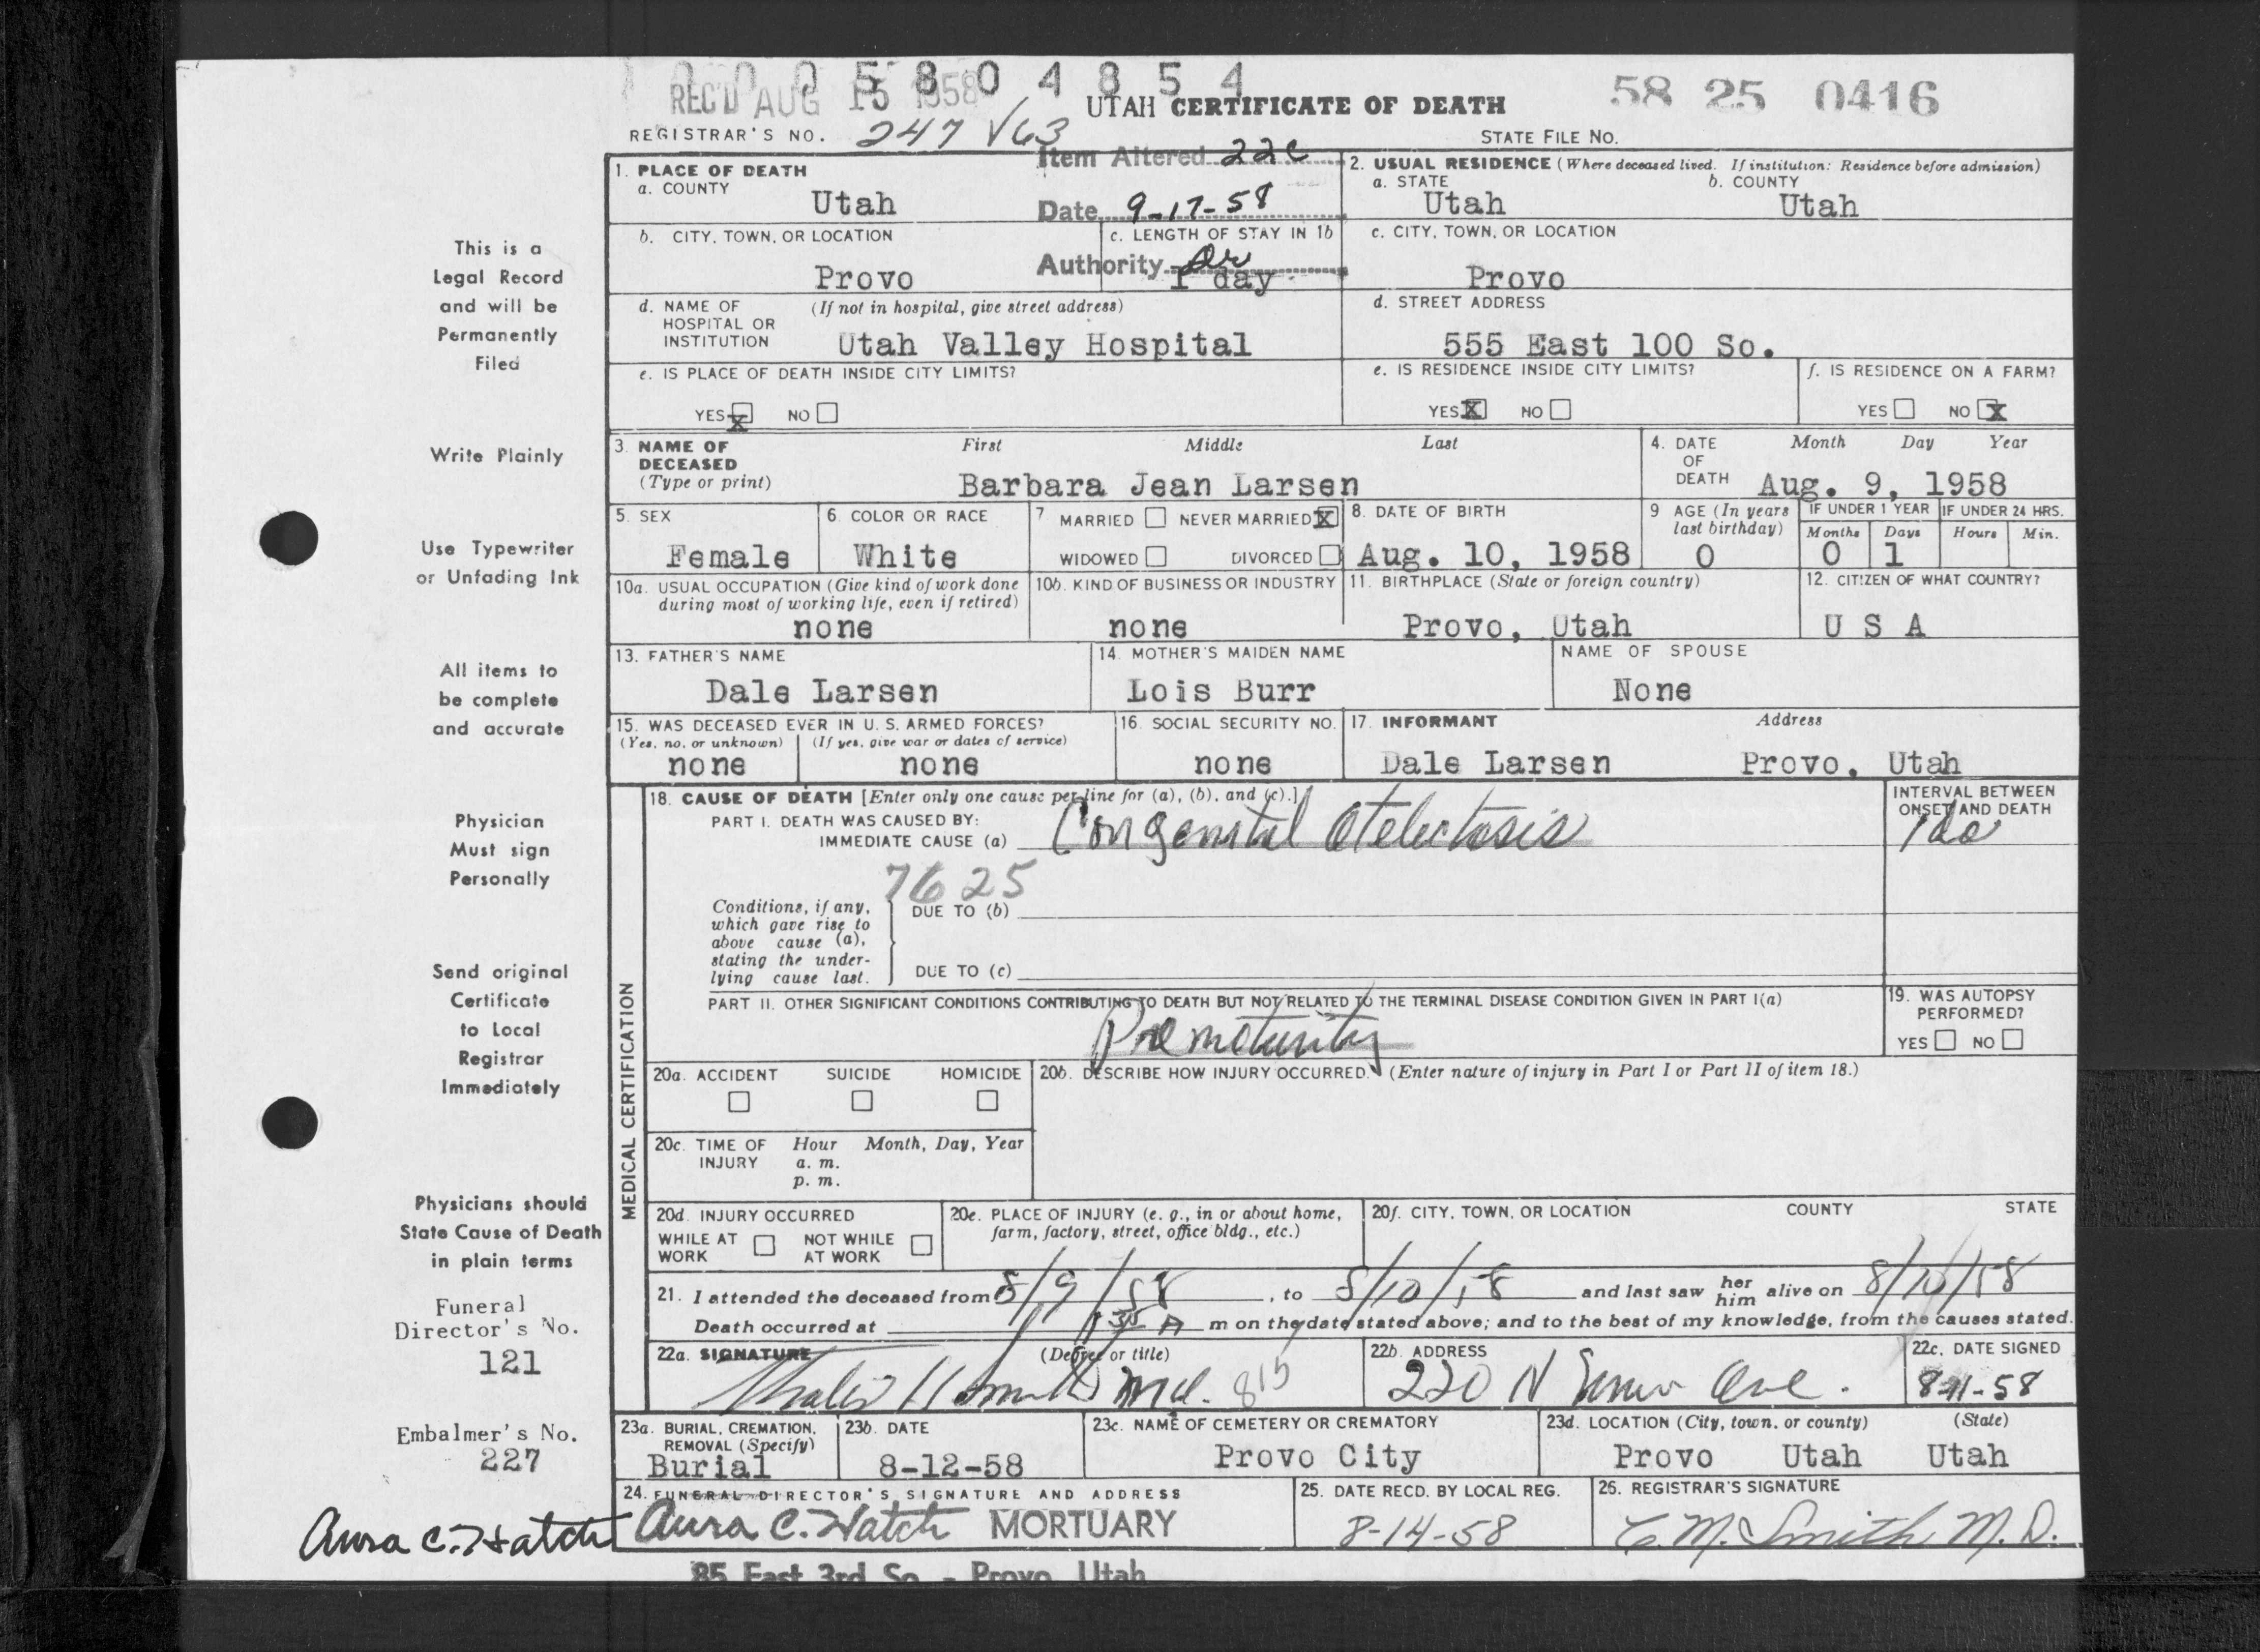 1 0 0 5 8 0 4 8 5 4
REC'D AUG 15 1958
UTAH CERTIFICATE OF DEATH
58 25 0416
REGISTRAR'S NO. 247 √63
STATE FILE NO.
Item Altered 22c
Date 9-17-58
Authority Dr
1. PLACE OF DEATH
a. COUNTY
Utah
2. USUAL RESIDENCE (Where deceased lived. If institution: Residence before admission)
a. STATE b. COUNTY
Utah Utah
b. CITY, TOWN, OR LOCATION
Provo
c. LENGTH OF STAY IN 1b
1 day
c. CITY, TOWN, OR LOCATION
Provo
d. NAME OF HOSPITAL OR INSTITUTION (If not in hospital, give street address)
Utah Valley Hospital
d. STREET ADDRESS
555 East 100 So.
e. IS PLACE OF DEATH INSIDE CITY LIMITS?
YES X NO
e. IS RESIDENCE INSIDE CITY LIMITS?
YES X NO
f. IS RESIDENCE ON A FARM?
YES NO X
3. NAME OF DECEASED (Type or print)
First Middle Last
Barbara Jean Larsen
4. DATE OF DEATH
Month Day Year
Aug. 9, 1958
5. SEX
Female
6. COLOR OR RACE
White
7 MARRIED NEVER MARRIED X
WIDOWED DIVORCED
8. DATE OF BIRTH
Aug. 10, 1958
9 AGE (In years last birthday)
0
IF UNDER 1 YEAR
Months Days
0 1
IF UNDER 24 HRS.
Hours Min.
10a. USUAL OCCUPATION (Give kind of work done during most of working life, even if retired)
none
10b. KIND OF BUSINESS OR INDUSTRY
none
11. BIRTHPLACE (State or foreign country)
Provo, Utah
12. CITIZEN OF WHAT COUNTRY?
U S A
13. FATHER'S NAME
Dale Larsen
14. MOTHER'S MAIDEN NAME
Lois Burr
NAME OF SPOUSE
None
15. WAS DECEASED EVER IN U. S. ARMED FORCES?
(Yes, no, or unknown) (If yes, give war or dates of service)
none none
16. SOCIAL SECURITY NO.
none
17. INFORMANT Address
Dale Larsen Provo, Utah
MEDICAL CERTIFICATION
18. CAUSE OF DEATH [Enter only one cause per line for (a), (b), and (c).]
PART I. DEATH WAS CAUSED BY:
IMMEDIATE CAUSE (a) Congenital Atelectasis
INTERVAL BETWEEN ONSET AND DEATH
1 da
7625
Conditions, if any, which gave rise to above cause (a), stating the underlying cause last.
DUE TO (b)
DUE TO (c)
PART II. OTHER SIGNIFICANT CONDITIONS CONTRIBUTING TO DEATH BUT NOT RELATED TO THE TERMINAL DISEASE CONDITION GIVEN IN PART I(a)
Prematurity
19. WAS AUTOPSY PERFORMED?
YES NO
20a. ACCIDENT SUICIDE HOMICIDE
20b. DESCRIBE HOW INJURY OCCURRED. (Enter nature of injury in Part I or Part II of item 18.)
20c. TIME OF INJURY Hour Month, Day, Year
a. m.
p. m.
20d. INJURY OCCURRED
WHILE AT WORK NOT WHILE AT WORK
20e. PLACE OF INJURY (e. g., in or about home, farm, factory, street, office bldg., etc.)
20f. CITY, TOWN, OR LOCATION COUNTY STATE
21. I attended the deceased from 8/9/58, to 8/10/58 and last saw her him alive on 8/10/58
Death occurred at 1 35 A m on the date stated above; and to the best of my knowledge, from the causes stated.
22a. SIGNATURE (Degree or title)
Smith M.d. 815
22b. ADDRESS
220 N Ave.
22c. DATE SIGNED
8-11-58
23a. BURIAL, CREMATION, REMOVAL (Specify)
Burial
23b. DATE
8-12-58
23c. NAME OF CEMETERY OR CREMATORY
Provo City
23d. LOCATION (City, town, or county) (State)
Provo Utah Utah
24. FUNERAL DIRECTOR'S SIGNATURE AND ADDRESS
Aura C. Hatch MORTUARY
85 East 3rd So. - Provo, Utah
25. DATE RECD. BY LOCAL REG.
8-14-58
26. REGISTRAR'S SIGNATURE
C. M. Smith M. D.
This is a
Legal Record
and will be
Permanently
Filed
Write Plainly
Use Typewriter
or Unfading Ink
All items to
be complete
and accurate
Physician
Must sign
Personally
Send original
Certificate
to Local
Registrar
Immediately
Physicians should
State Cause of Death
in plain terms
Funeral
Director's No.
121
Embalmer's No.
227
Aura C. Hatch